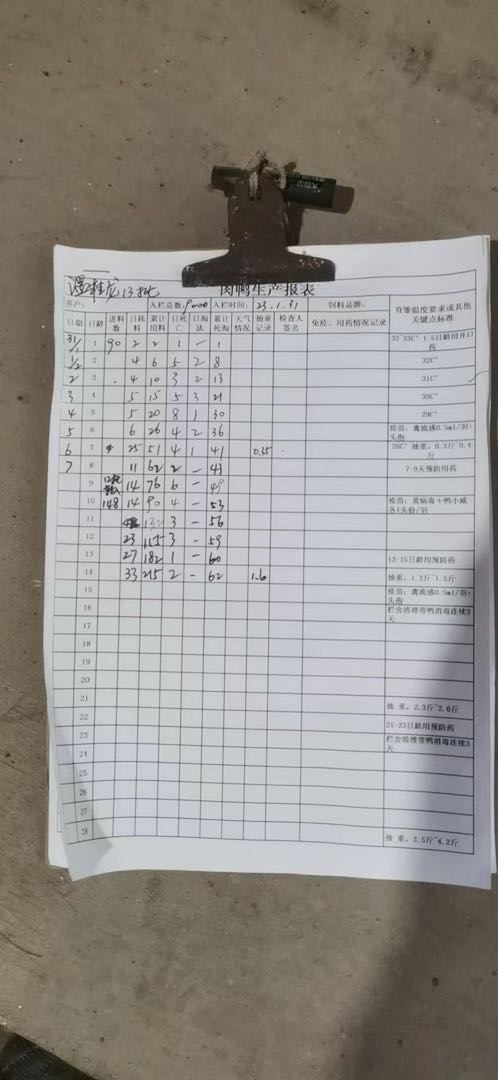 13批 肉鸭生产报表
客户: 入栏总数: 9000 入栏时间: 23.1.31 饲料品牌:
日期 日龄 进料数 日耗料 累计用料 日死亡 日淘汰 累计死淘 天气情况 抽重记录 检查人签名 免疫、用药情况记录 育雏温度要求或其他关键点标准
31/1 1 90 2 2 1 - 1 32~33C° 1-5日龄用开口药
1/2 2 4 6 5 2 8 32C°
2 3 4 10 3 2 13 31C°
3 4 5 15 5 3 21 30C°
4 5 5 20 8 1 30 29C°
5 6 6 26 4 2 36 疫苗: 禽流感0.5ml/羽1头孢
6 7 25 51 4 1 41 0.35 26C° 抽重, 0.3斤~0.4斤
7 8 11 62 2 - 43 7-9天预防用药
9 14 76 6 - 49
10 148 14 90 4 - 53 疫苗: 黄病毒+鸭小咸各1头份/羽
11 132 3 - 56
12 23 155 3 - 59
13 27 182 1 - 60 13-15日龄用预防药
14 33 215 2 - 62 1.6 抽重, 1.2斤~1.5斤
15 疫苗: 禽流感0.5ml/羽1头孢
16 栏舍清理带鸭消毒连续3天
17
18
19
20
21 抽重, 2.3斤~2.6斤
22 21-23日龄用预防药
23 栏舍清理带鸭消毒连续3天
24
25
26
27
28 抽重, 3.5斤~4.2斤